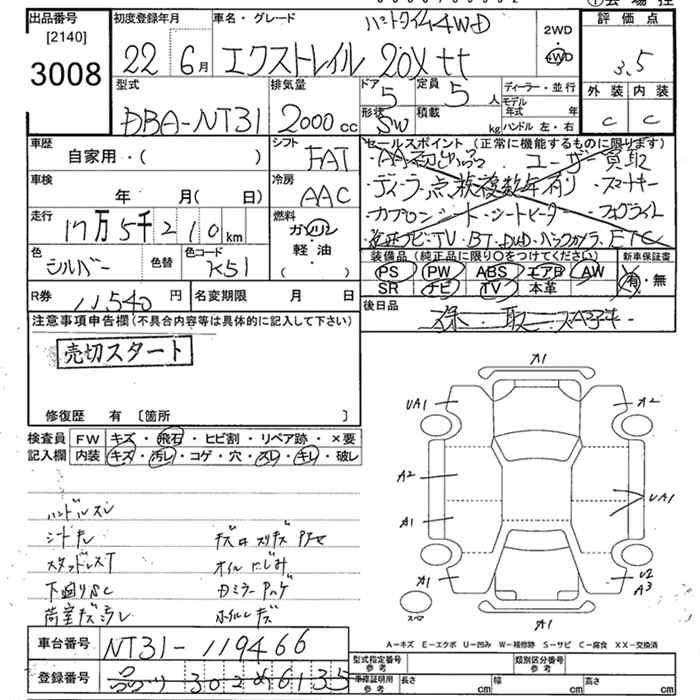 出品番号
[2140]
3008
初度登録年月
22 6月
車名・グレード
パートタイム4WD
エクストレイル 20Xtt
2WD
4WD
評価点
3.5
外装 内装
C C
型式
DBA-NT31
排気量
2000cc
ドア 5
定員 5人
形状 SW
積載 kg
ディーラー・並行
モデル年式 年
ハンドル 左・右
車歴
自家用・( )
シフト
FAT
車検
年 月( 日)
冷房
AAC
走行
17万5千210km
燃料
ガソリン
軽油
( )
色
シルバー
色替
色コード
K51
R券 11,540円
名変期限 月 日
セールスポイント (正常に機能するものに限ります)
ユーザー買取
・スマートキー
・カプロンシート・シートヒーター・フォグライト
TV・BT・DVD・バックカメラ・ETC
装備品(純正品に限り○をつけてください)
PS PW ABS エアB AW
SR ナビ TV 本革
新車保証書
有・無
後日品
注意事項申告欄(不具合内容等は具体的に記入して下さい)
売切スタート
修復歴 有 〔箇所 〕
検査員記入欄
FW キズ・飛石・ヒビ割・リペア跡・×要
内装 キズ・汚レ・コゲ・穴・スレ・キレ・破レ
ハンドルスレ
シートキレ
スタッドレスT
下回りSC
荷室キズ汚レ
オイルにじみ
ホイルキズ
A1
UA1
A2
A2
A1
UA1
A1
U2
A3
スペア
A1
A-キズ E-エクボ U-凹み W-補修跡 S-サビ C-腐食 XX-交換済
車台番号 NT31-119466
登録番号 品川 302 め 6135
型式指定番号
参考
類別区分番号
参考
車庫証明用
参考
長さ cm
幅 cm
高さ cm